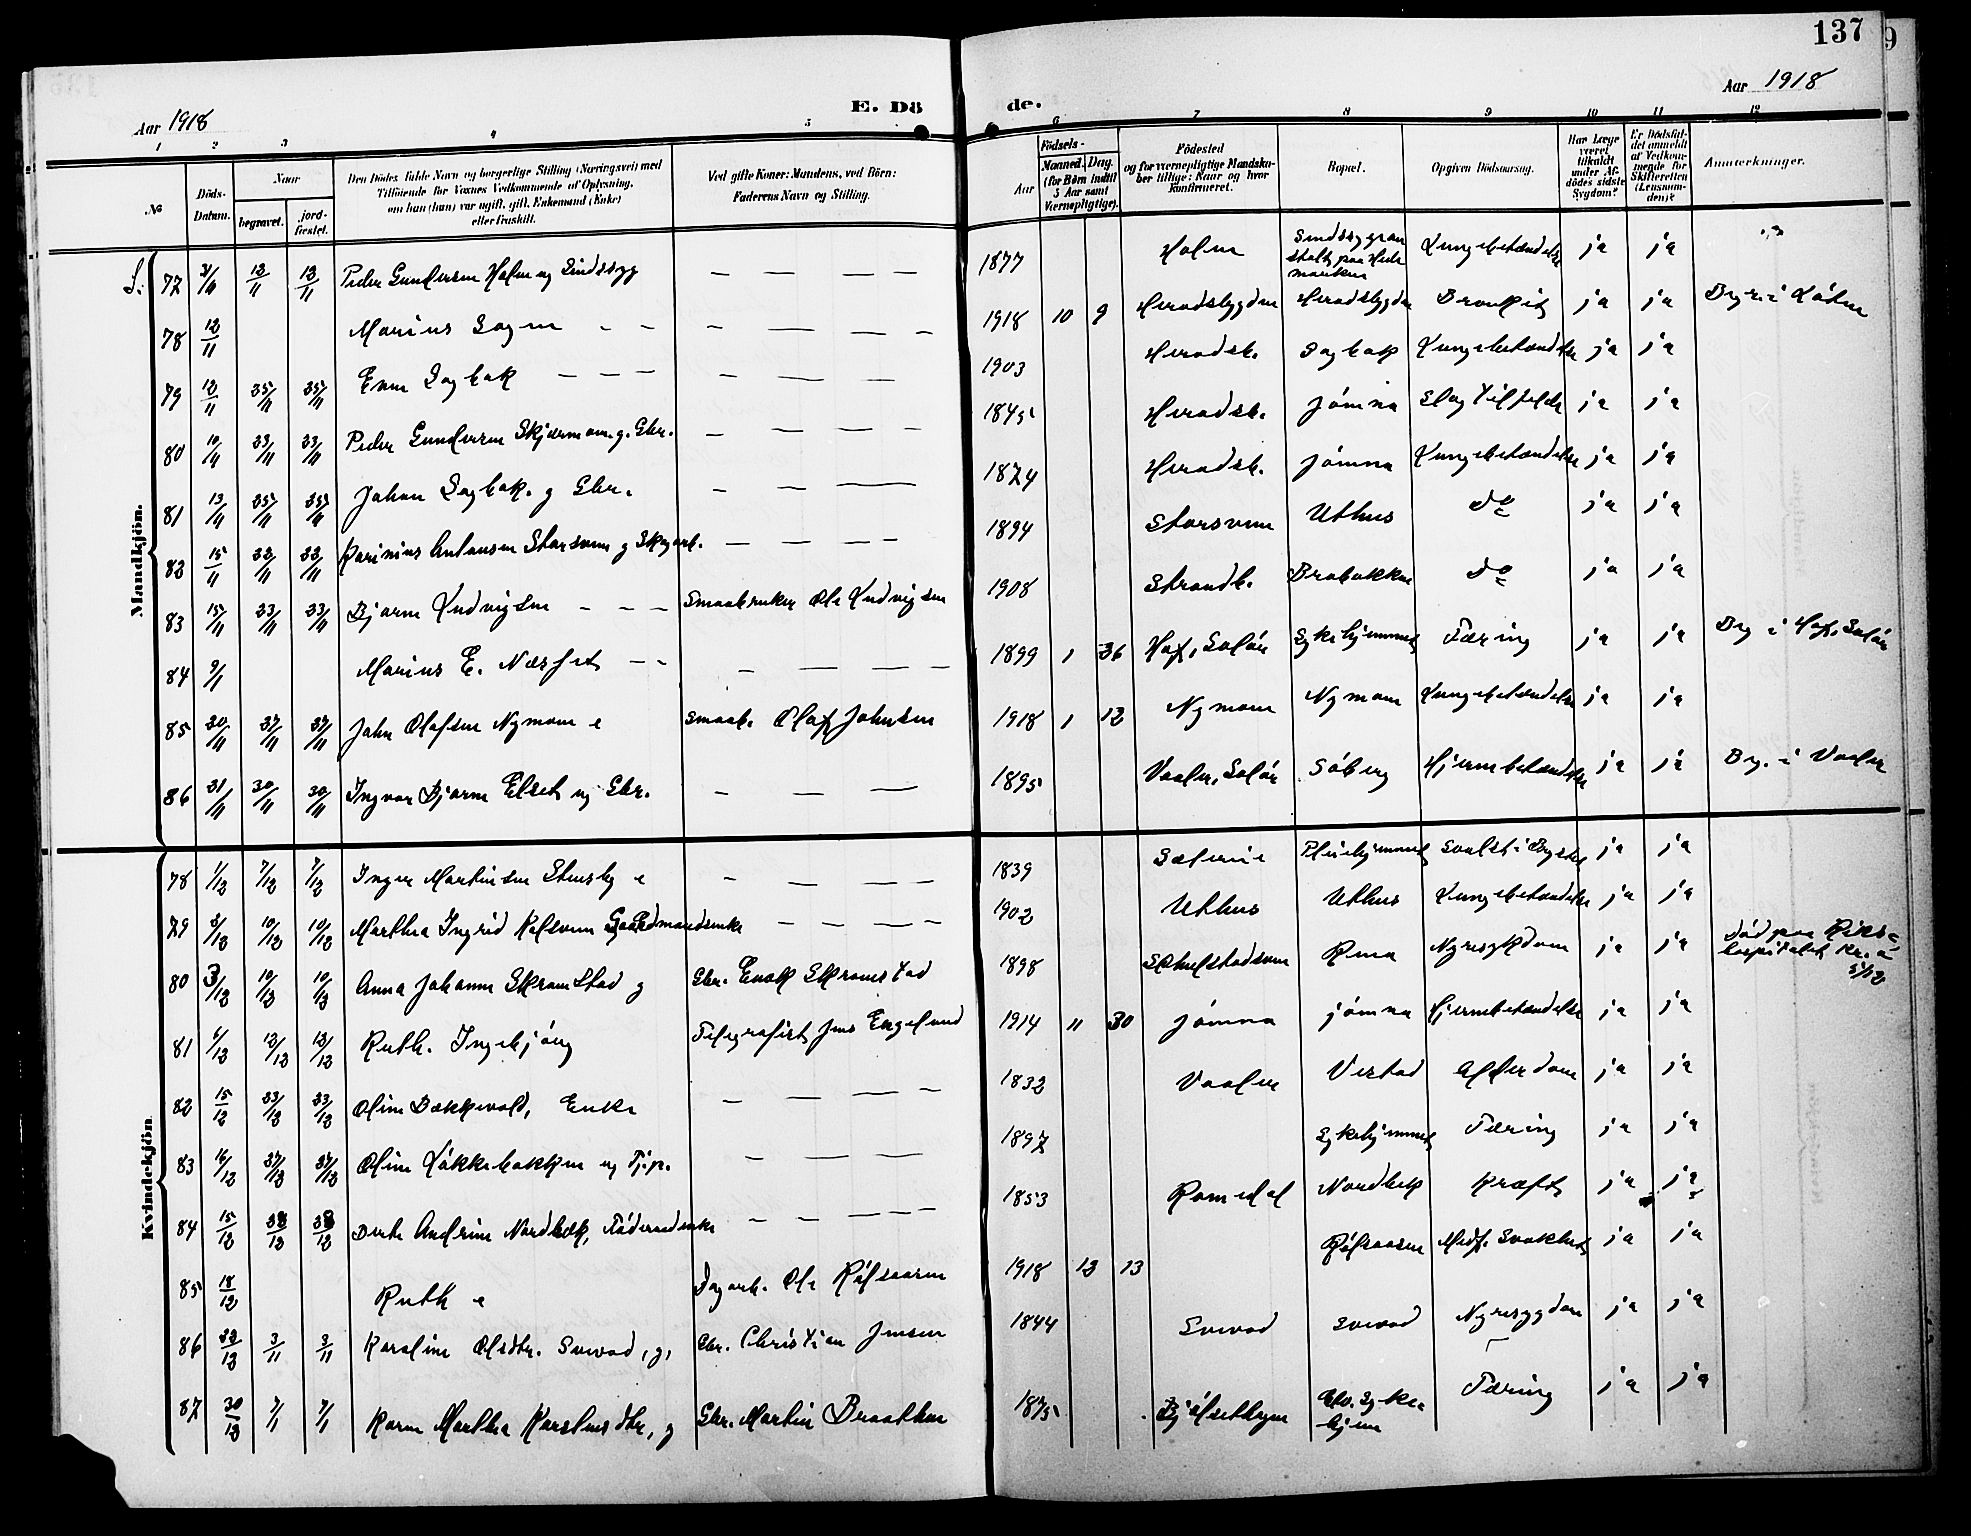 137
9
Aar 1918
E. Dö
de.
Aar 1918
1 2 3 4 5 6 7 8 9 10 11 12
№
Döds-Datum.
Naar
begravet.
jord-fæstet.
Den Dödes fulde Navn og borgerlige Stilling (Næringsvei) med
Tilföiende for Voxnes Vedkommende af Oplysning,
om han (hun) var ugift, gift, Enkemand (Enke)
eller fraskilt.
Ved gifte Koner: Mandens, ved Börn:
Faderens Navn og Stilling.
Födsels-
Aar
Maaned. Dag.
(for Börn indtil
5 Aar samt
Værnepligtige).
Födested
og for værnepligtige Mandska-
ber tillige: Naar og hvor
Konfirmeret.
Bopæl.
Opgiven Dödsaarsag.
Har Læge
været
tilkaldt
under Af-
dödes sidste
Sygdom?
Er Dödsfal-
det anmeldt
af Vedkom-
mende for
Skifteretten
(Lensman-
den)?
Anmærkninger.
Mandkjön.
77 13/11 13/11 Peder Gundersen Holm ug Sindssyg — — — — 1877 Holm Lungebetændelse ja ja
78 12/11 Marius Sagen — — — — — — 1918 10 9 Heradsbygden Heradsbygden Bronkit ja ja
79 12/11 25/11 25/11 Even Sagbak — — — — — — 1903 Heradsb. Sagbak Lungebetændelse ja ja
80 10/11 23/11 23/11 Peder Gundersen g. Gbr. — — — — 1845 Heradsb. Jömna Slagtilfelde ja ja
81 13/11 25/11 25/11 Johan Sagbak. g Gbr. — — — 1874 Heradsb. Jömna Lungebetændelse ja ja
82 15/11 22/11 22/11 Karinius Antonsen Storsveen g Skogarb. — — — — 1894 Storsveen Uthus do ja ja
83 15/11 23/11 23/11 Bjarne Ludvigsen — — — Smaabruker Ole Ludvigsen 1908 Strandb. Brabakken do ja ja
84 9/1 Marius E. Næsset — — — — — — 1899 1 26 Hof, Solör Sykehjemmet Tæring ja ja Bg i Hof, Solör
85 20/11 27/11 27/11 John Olafsen Nymoen e Smaab. Olaf Johnsen 1918 1 12 Nymoen Nymoen Lungebetændelse ja ja
86 21/11 30/11 30/11 Ingvar Bjarne Elset ug Gbr. — — — 1895 Vaaler, Solör Söberg Hjernebetændelse ja ja Bg. i Vaaler
Kvindekjön
78 1/12 7/12 7/12 Inger Martinsen Stensby e — — — — 1839 Sæterie Pleiehjemmet ja ja
79 10/12 10/12 Martha Ingrid Kalsveen Gaardmandsenke — — — — 1902 Uthus Uthus Lungebetændelse ja ja
80 3/12 10/12 10/12 Anna Johanne Skramstad g Gbr. Enok Skramstad 1898 Rena Nyresykdom ja ja Död paa Riks-
hospitalet Kr.a
81 6/12 12/12 12/12 Ruth. Ingebjörg Telegrafist Jens Engelund 1914 11 30 Jömna Jömna Hjernebetændelse ja ja
82 15/12 23/12 23/12 Oline Bækkevold, Enke — — — — 1832 Vaaler Vestad Alderdom ja ja
83 16/12 27/12 27/12 Oline Løkkebakken ug Tj.p. — — — 1897 Sykehjemmet Tæring ja ja
84 15/12 28/12 28/12 Berte Andrine Nordbæk, Föderaadsenke — — — — 1853 Romedal Nordbek Kræft ja ja
85 18/12 Ruth e Dagarb. Ole Röfsaasen 1918 12 13 Röfsaasen Medf. Svakhet ja ja
86 22/12 3/11 3/11 Karoline Olsdtr. Svevad, g, Gbr. Christian Jensen 1844 Svevad Svevad Nyresygdom ja ja
87 30/12 7/1 7/1 Karen Martha Karstensdtr, g Gbr. Martin Braathen 1875 Elv. Syke-
hjem Tæring ja ja